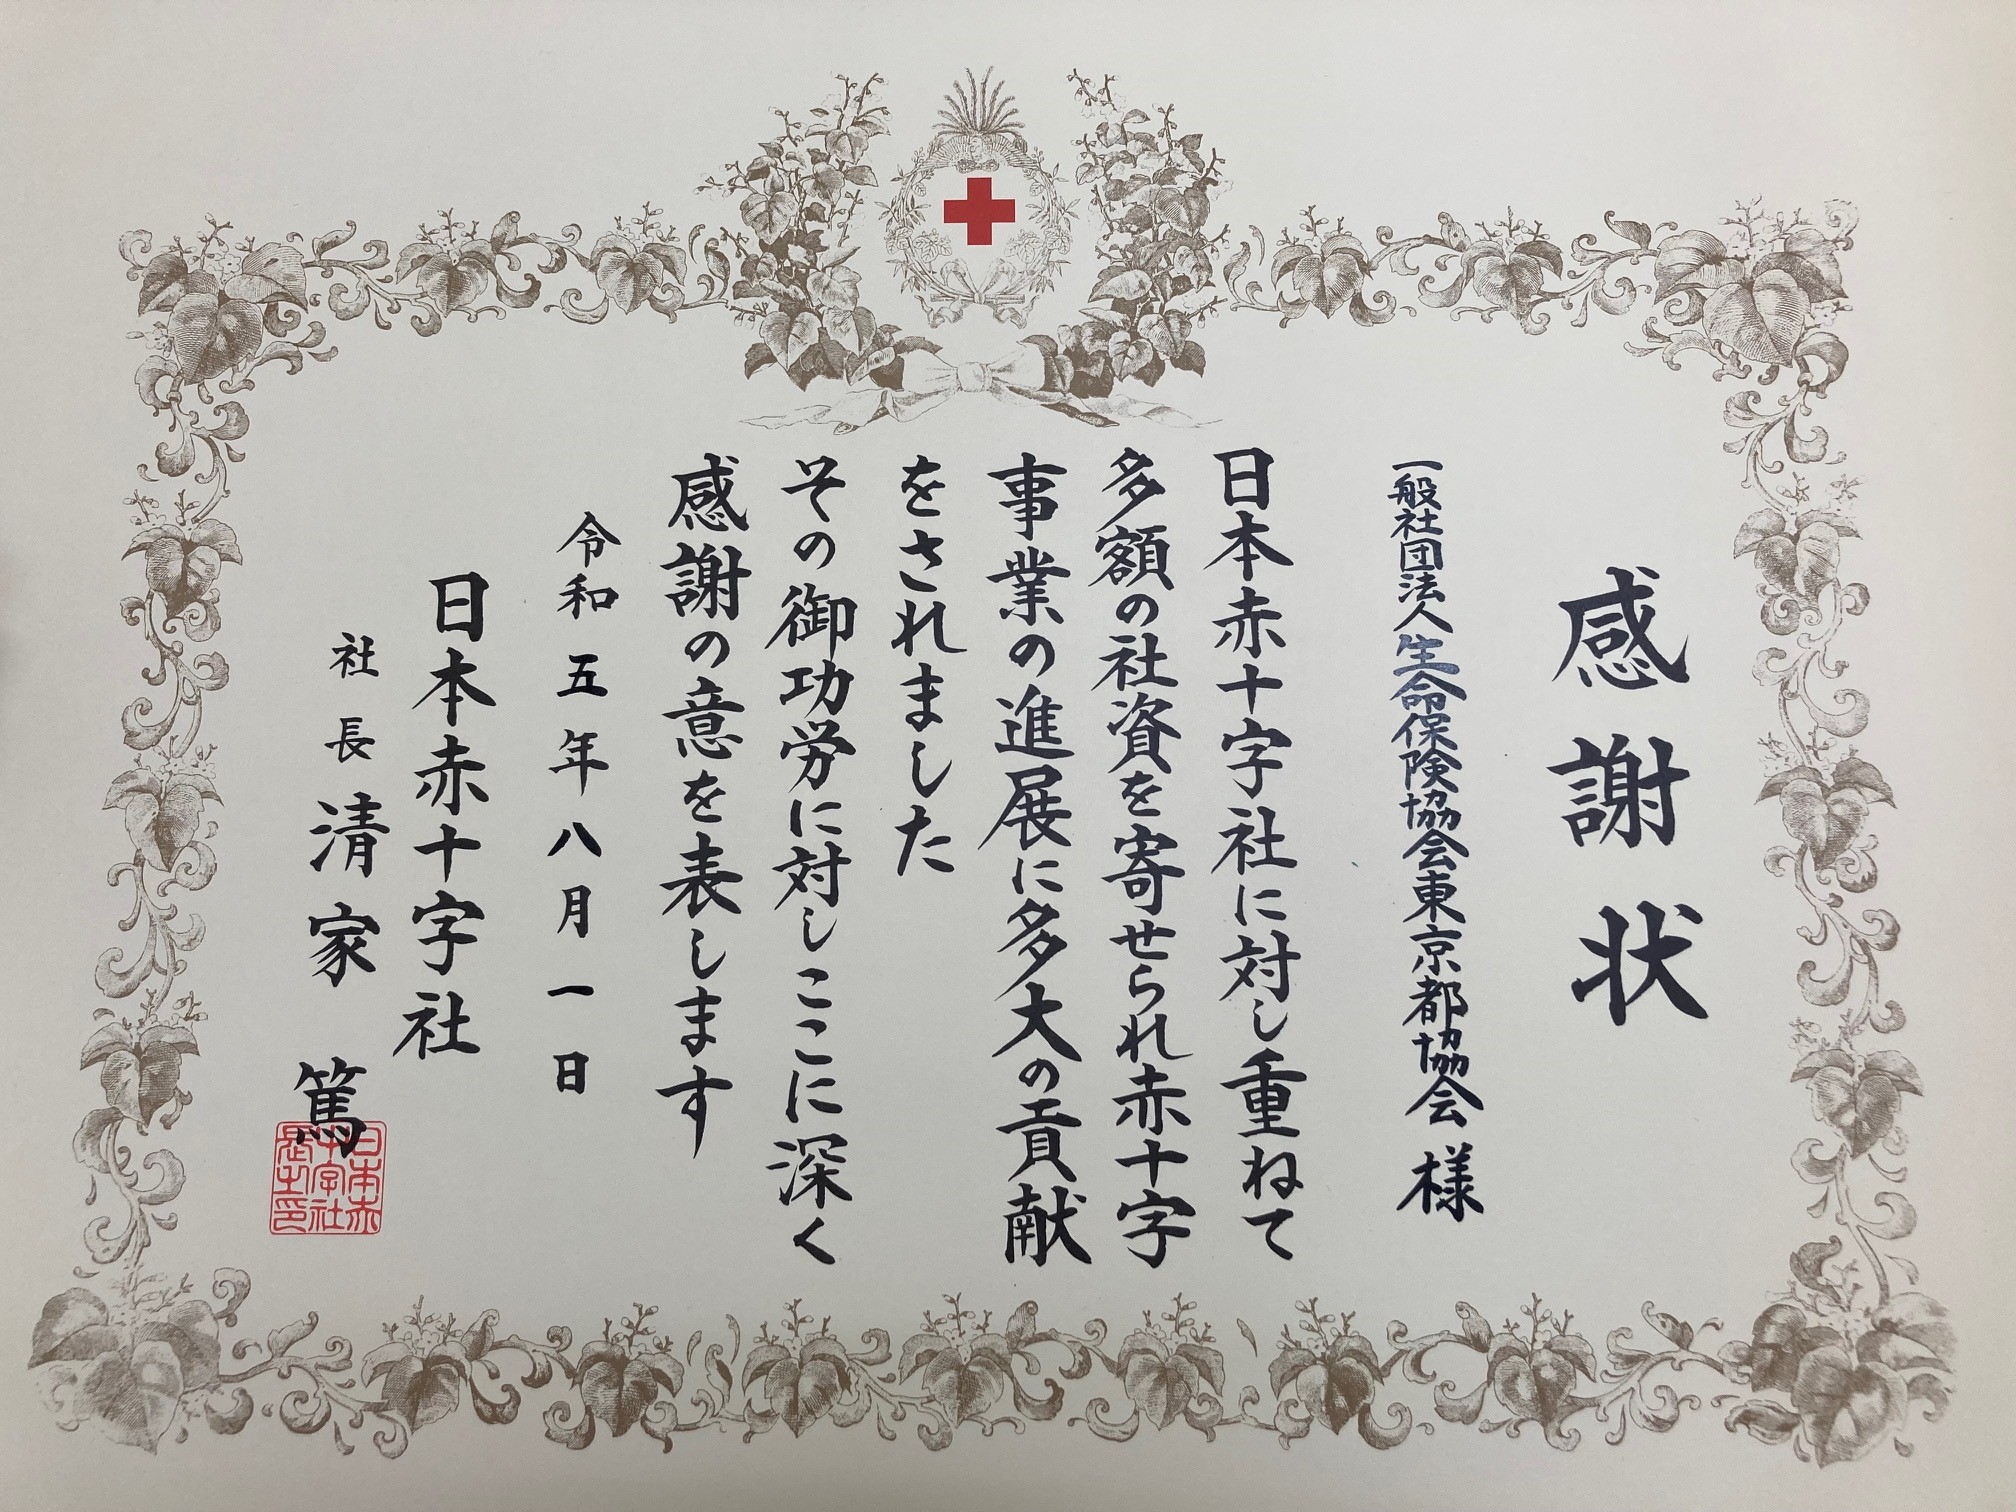 感謝状
一般社団法人生命保険協会東京都協会様
日本赤十字社に対し重ねて
多額の社資を寄せられ赤十字
事業の進展に多大の貢献
をされました
その御功労に対しここに深く
感謝の意を表します
令和五年八月一日
日本赤十字社
社長清家篤
日本赤
十字社